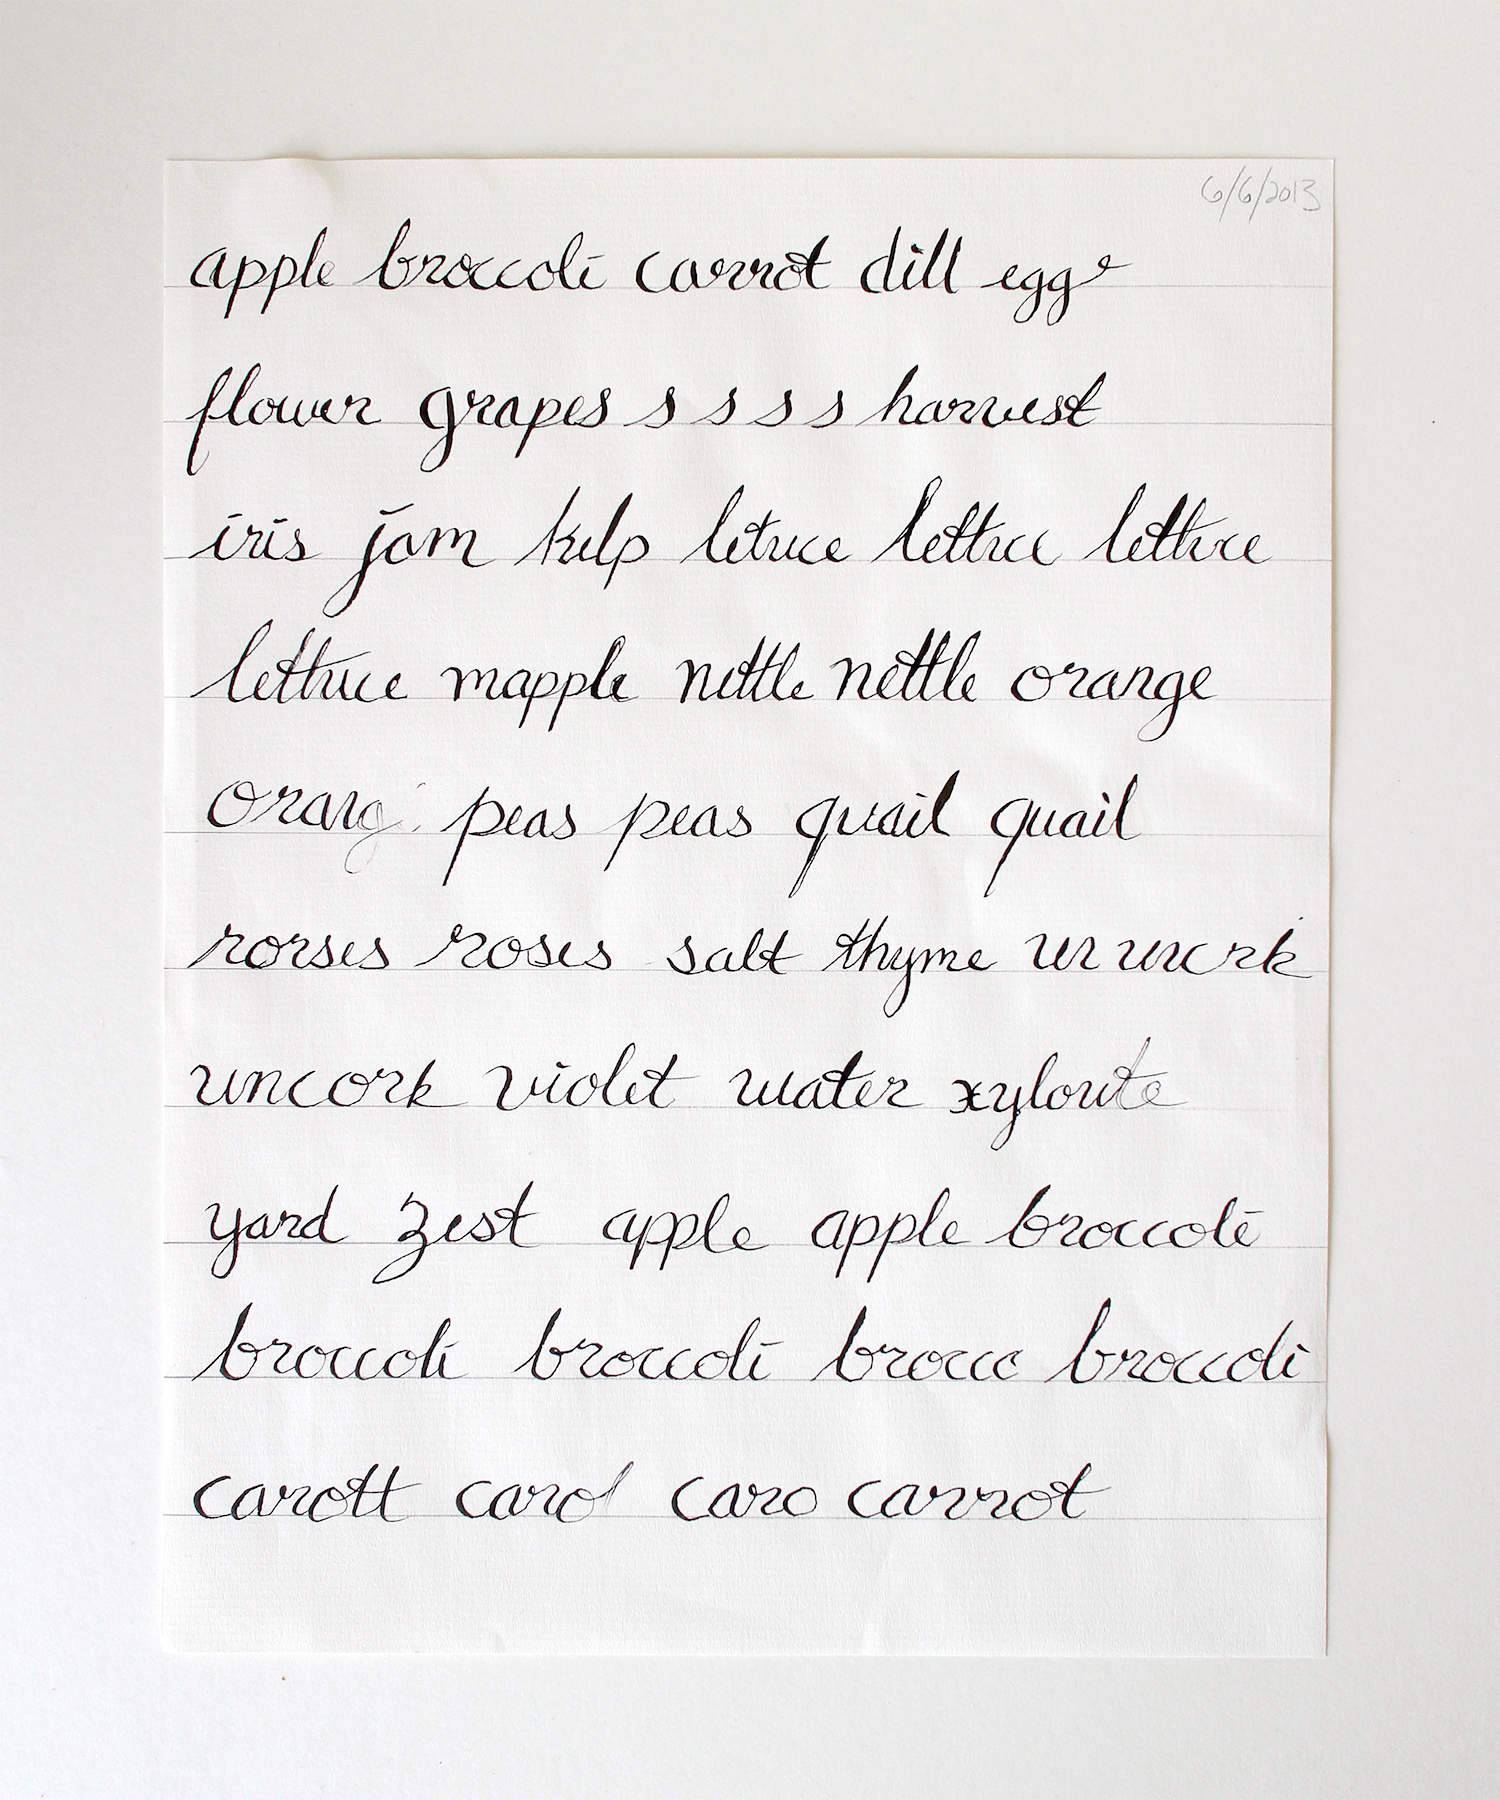 6/6/2013
apple broccoli carrot dill egg
flower grapes s s s s harvest
iris jam kelp letuce lettuce lettuce
lettuce mapple nettle nettle orange
orang peas peas quail quail
rorses roses salt thyme un uncrk
uncork violet water
yard zest apple apple broccoli
broccoli broccoli brocco broccoli
carott carot caro carrot